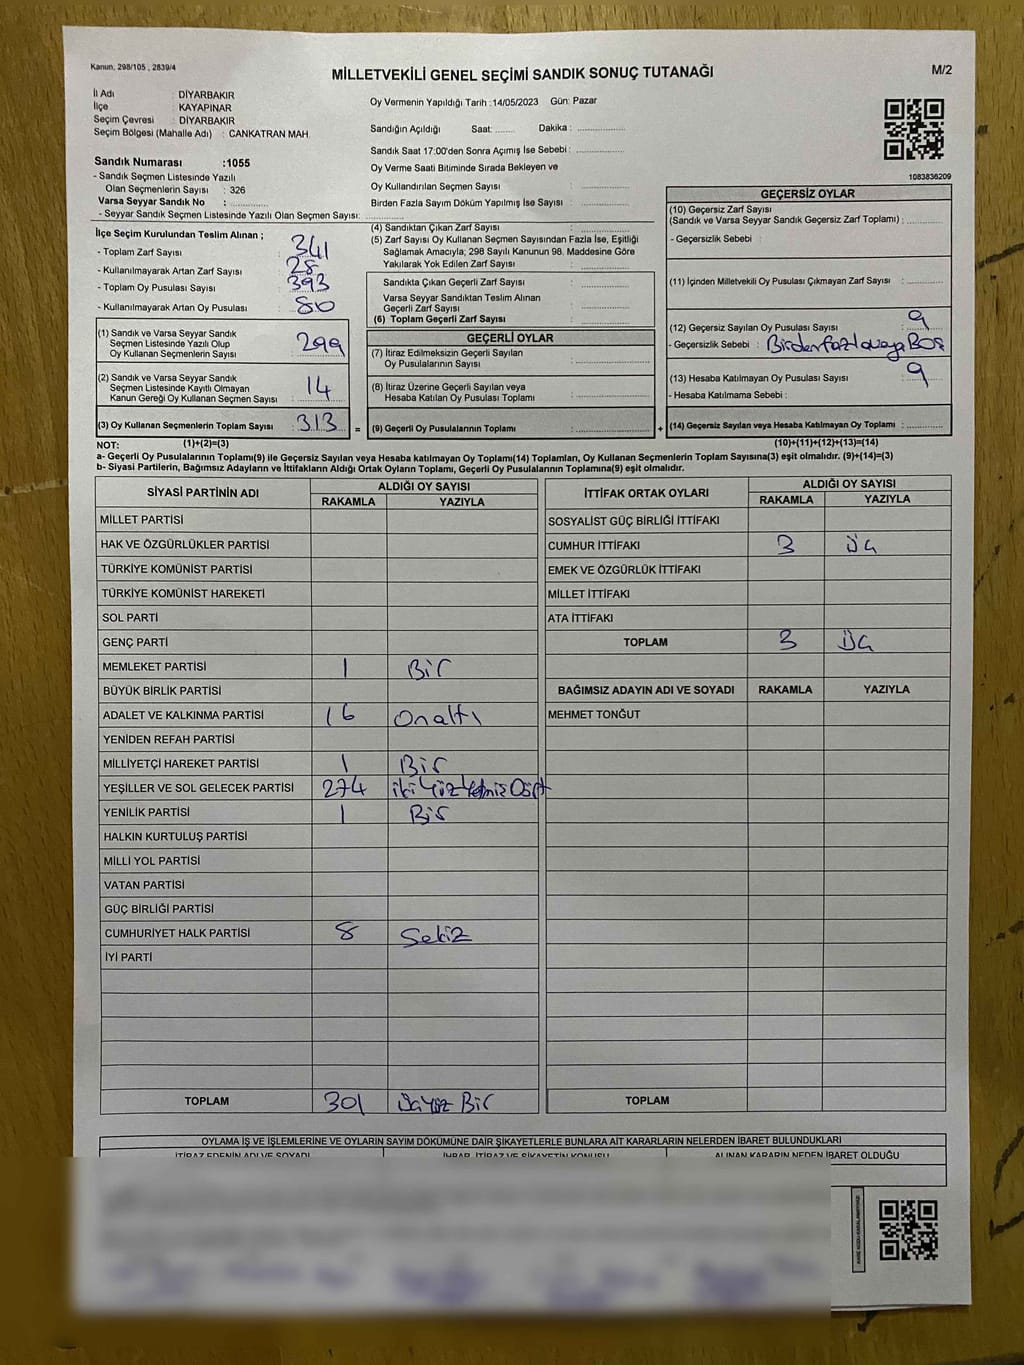 Kanun, 298/105 , 2839/4
MİLLETVEKİLİ GENEL SEÇİMİ SANDIK SONUÇ TUTANAĞI
M/2
İl Adı : DİYARBAKIR
İlçe : KAYAPINAR
Seçim Çevresi : DİYARBAKIR
Seçim Bölgesi (Mahalle Adı) : CANKATRAN MAH.
Sandık Numarası :1055
- Sandık Seçmen Listesinde Yazılı
Olan Seçmenlerin Sayısı : 326
Varsa Seyyar Sandık No :
- Seyyar Sandık Seçmen Listesinde Yazılı Olan Seçmen Sayısı:
Oy Vermenin Yapıldığı Tarih :14/05/2023 Gün: Pazar
Sandığın Açıldığı Saat: Dakika :
Sandık Saat 17:00'den Sonra Açımış İse Sebebi :
Oy Verme Saati Bitiminde Sırada Bekleyen ve
Oy Kullandırılan Seçmen Sayısı :
Birden Fazla Sayım Döküm Yapılmış İse Sayısı :
1083836209
İlçe Seçim Kurulundan Teslim Alınan ;
- Toplam Zarf Sayısı : 341
- Kullanılmayarak Artan Zarf Sayısı : 28
- Toplam Oy Pusulası Sayısı : 393
- Kullanılmayarak Artan Oy Pusulası : 80
(1) Sandık ve Varsa Seyyar Sandık
Seçmen Listesinde Yazılı Olup
Oy Kullanan Seçmenlerin Sayısı : 299
(2) Sandık ve Varsa Seyyar Sandık
Seçmen Listesinde Kayıtlı Olmayan
Kanun Gereği Oy Kullanan Seçmen Sayısı : 14
(3) Oy Kullanan Seçmenlerin Toplam Sayısı : 313
(4) Sandıktan Çıkan Zarf Sayısı :
(5) Zarf Sayısı Oy Kullanan Seçmen Sayısından Fazla İse, Eşitliği
Sağlamak Amacıyla; 298 Sayılı Kanunun 98. Maddesine Göre
Yakılarak Yok Edilen Zarf Sayısı :
Sandıkta Çıkan Geçerli Zarf Sayısı :
Varsa Seyyar Sandıktan Teslim Alınan
Geçerli Zarf Sayısı :
(6) Toplam Geçerli Zarf Sayısı :
GEÇERLİ OYLAR
(7) İtiraz Edilmeksizin Geçerli Sayılan
Oy Pusulalarının Sayısı :
(8) İtiraz Üzerine Geçerli Sayılan veya
Hesaba Katılan Oy Pusulası Toplamı :
= (9) Geçerli Oy Pusulalarının Toplamı :
GEÇERSİZ OYLAR
(10) Geçersiz Zarf Sayısı
(Sandık ve Varsa Seyyar Sandık Geçersiz Zarf Toplamı) :
- Geçersizlik Sebebi :
(11) İçinden Milletvekili Oy Pusulası Çıkmayan Zarf Sayısı :
(12) Geçersiz Sayılan Oy Pusulası Sayısı : 9
- Geçersizlik Sebebi : Birden fazla veya Boş
(13) Hesaba Katılmayan Oy Pusulası Sayısı : 9
- Hesaba Katılmama Sebebi :
+ (14) Geçersiz Sayılan veya Hesaba Katılmayan Oy Toplamı :
NOT: (1)+(2)=(3) (10)+(11)+(12)+(13)=(14)
a- Geçerli Oy Pusulalarının Toplamı(9) ile Geçersiz Sayılan veya Hesaba katılmayan Oy Toplamı(14) Toplamları, Oy Kullanan Seçmenlerin Toplam Sayısına(3) eşit olmalıdır. (9)+(14)=(3)
b- Siyasi Partilerin, Bağımsız Adayların ve İttifakların Aldığı Ortak Oyların Toplamı, Geçerli Oy Pusulalarının Toplamına(9) eşit olmalıdır.
SİYASİ PARTİNİN ADI ALDIĞI OY SAYISI
RAKAMLA YAZIYLA
MİLLET PARTİSİ
HAK VE ÖZGÜRLÜKLER PARTİSİ
TÜRKİYE KOMÜNİST PARTİSİ
TÜRKİYE KOMÜNİST HAREKETİ
SOL PARTİ
GENÇ PARTİ
MEMLEKET PARTİSİ 1 Bir
BÜYÜK BİRLİK PARTİSİ
ADALET VE KALKINMA PARTİSİ 16 Onaltı
YENİDEN REFAH PARTİSİ
MİLLİYETÇİ HAREKET PARTİSİ 1 Bir
YEŞİLLER VE SOL GELECEK PARTİSİ 274 iki Yüz Yetmiş Dört
YENİLİK PARTİSİ 1 Bir
HALKIN KURTULUŞ PARTİSİ
MİLLİ YOL PARTİSİ
VATAN PARTİSİ
GÜÇ BİRLİĞİ PARTİSİ
CUMHURİYET HALK PARTİSİ 8 Sekiz
İYİ PARTİ
TOPLAM 301 üçyüz Bir
İTTİFAK ORTAK OYLARI ALDIĞI OY SAYISI
RAKAMLA YAZIYLA
SOSYALİST GÜÇ BİRLİĞİ İTTİFAKI
CUMHUR İTTİFAKI 3 Üç
EMEK VE ÖZGÜRLÜK İTTİFAKI
MİLLET İTTİFAKI
ATA İTTİFAKI
TOPLAM 3 Üç
BAĞIMSIZ ADAYIN ADI VE SOYADI RAKAMLA YAZIYLA
MEHMET TONĞUT
TOPLAM
OYLAMA İŞ VE İŞLEMLERİNE VE OYLARIN SAYIM DÖKÜMÜNE DAİR ŞİKAYETLERLE BUNLARA AİT KARARLARIN NELERDEN İBARET BULUNDUKLARI
İTİRAZ EDENİN ADI VE SOYADI İHBAR, İTİRAZ VE ŞİKAYETİN KONUSU ALINAN KARARIN NEDEN İBARET OLDUĞU